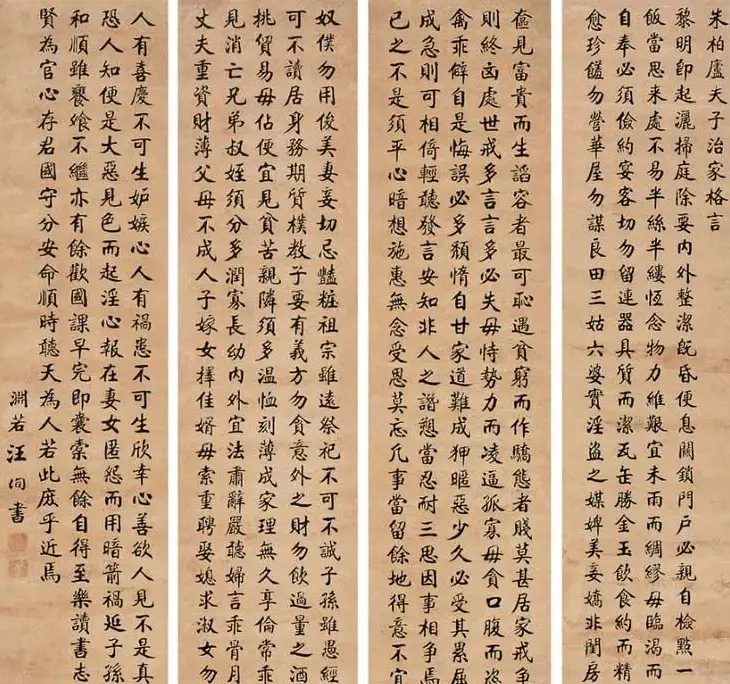 朱柏廬夫子治家格言
黎明即起灑掃庭除要内外整潔既昏便息關鎖門戶必親自檢點一
飯當思来處不易半絲半縷恆念物力維艱宜未雨而綢繆毋臨渴而
自奉必須儉約宴客切勿留連器具質而潔瓦缶勝金玉飲食約而精
愈珍饈勿營華屋勿謀良田三姑六婆實淫盜之媒婢美妾嬌非閨房
奩見富貴而生諂容者最可恥遇貧窮而作驕態者賤莫甚居家戒爭
則終凶處世戒多言言多必失毋恃勢力而凌逼孤寡毋貪口腹而恣
禽乖僻自是悔誤必多頹惰自甘家道難成狎暱惡少久必受其累屈
成急則可相倚輕聽發言安知非人之譖愬當忍耐三思因事相爭焉
己之不是須平心暗想施惠無念受恩莫忘凡事當留餘地得意不宜
奴僕勿用俊美妻妾切忌豔粧祖宗雖遠祭祀不可不誠子孫雖愚經
可不讀居身務期質樸教子要有義方勿貪意外之財勿飲過量之酒
挑貿易毋佔便宜見貧苦親隣須多温恤刻薄成家理無久享倫常乖
見消亡兄弟叔姪須分多潤寡長幼内外宜法肅辭嚴聽婦言乖骨月
丈夫重資財薄父母不成人子嫁女擇佳婿毋索重聘娶媳求淑女勿
人有喜慶不可生妒嫉心人有禍患不可生欣幸心善欲人見不是真
恐人知便是大惡見色而起淫心報在妻女匿怨而用暗箭禍延子孫
和順雖饔飧不繼亦有餘歡國課早完即囊橐無餘自得至樂讀書志
賢為官心存君國守分安命順時聽天為人若此庶乎近焉
淵若汪洵書